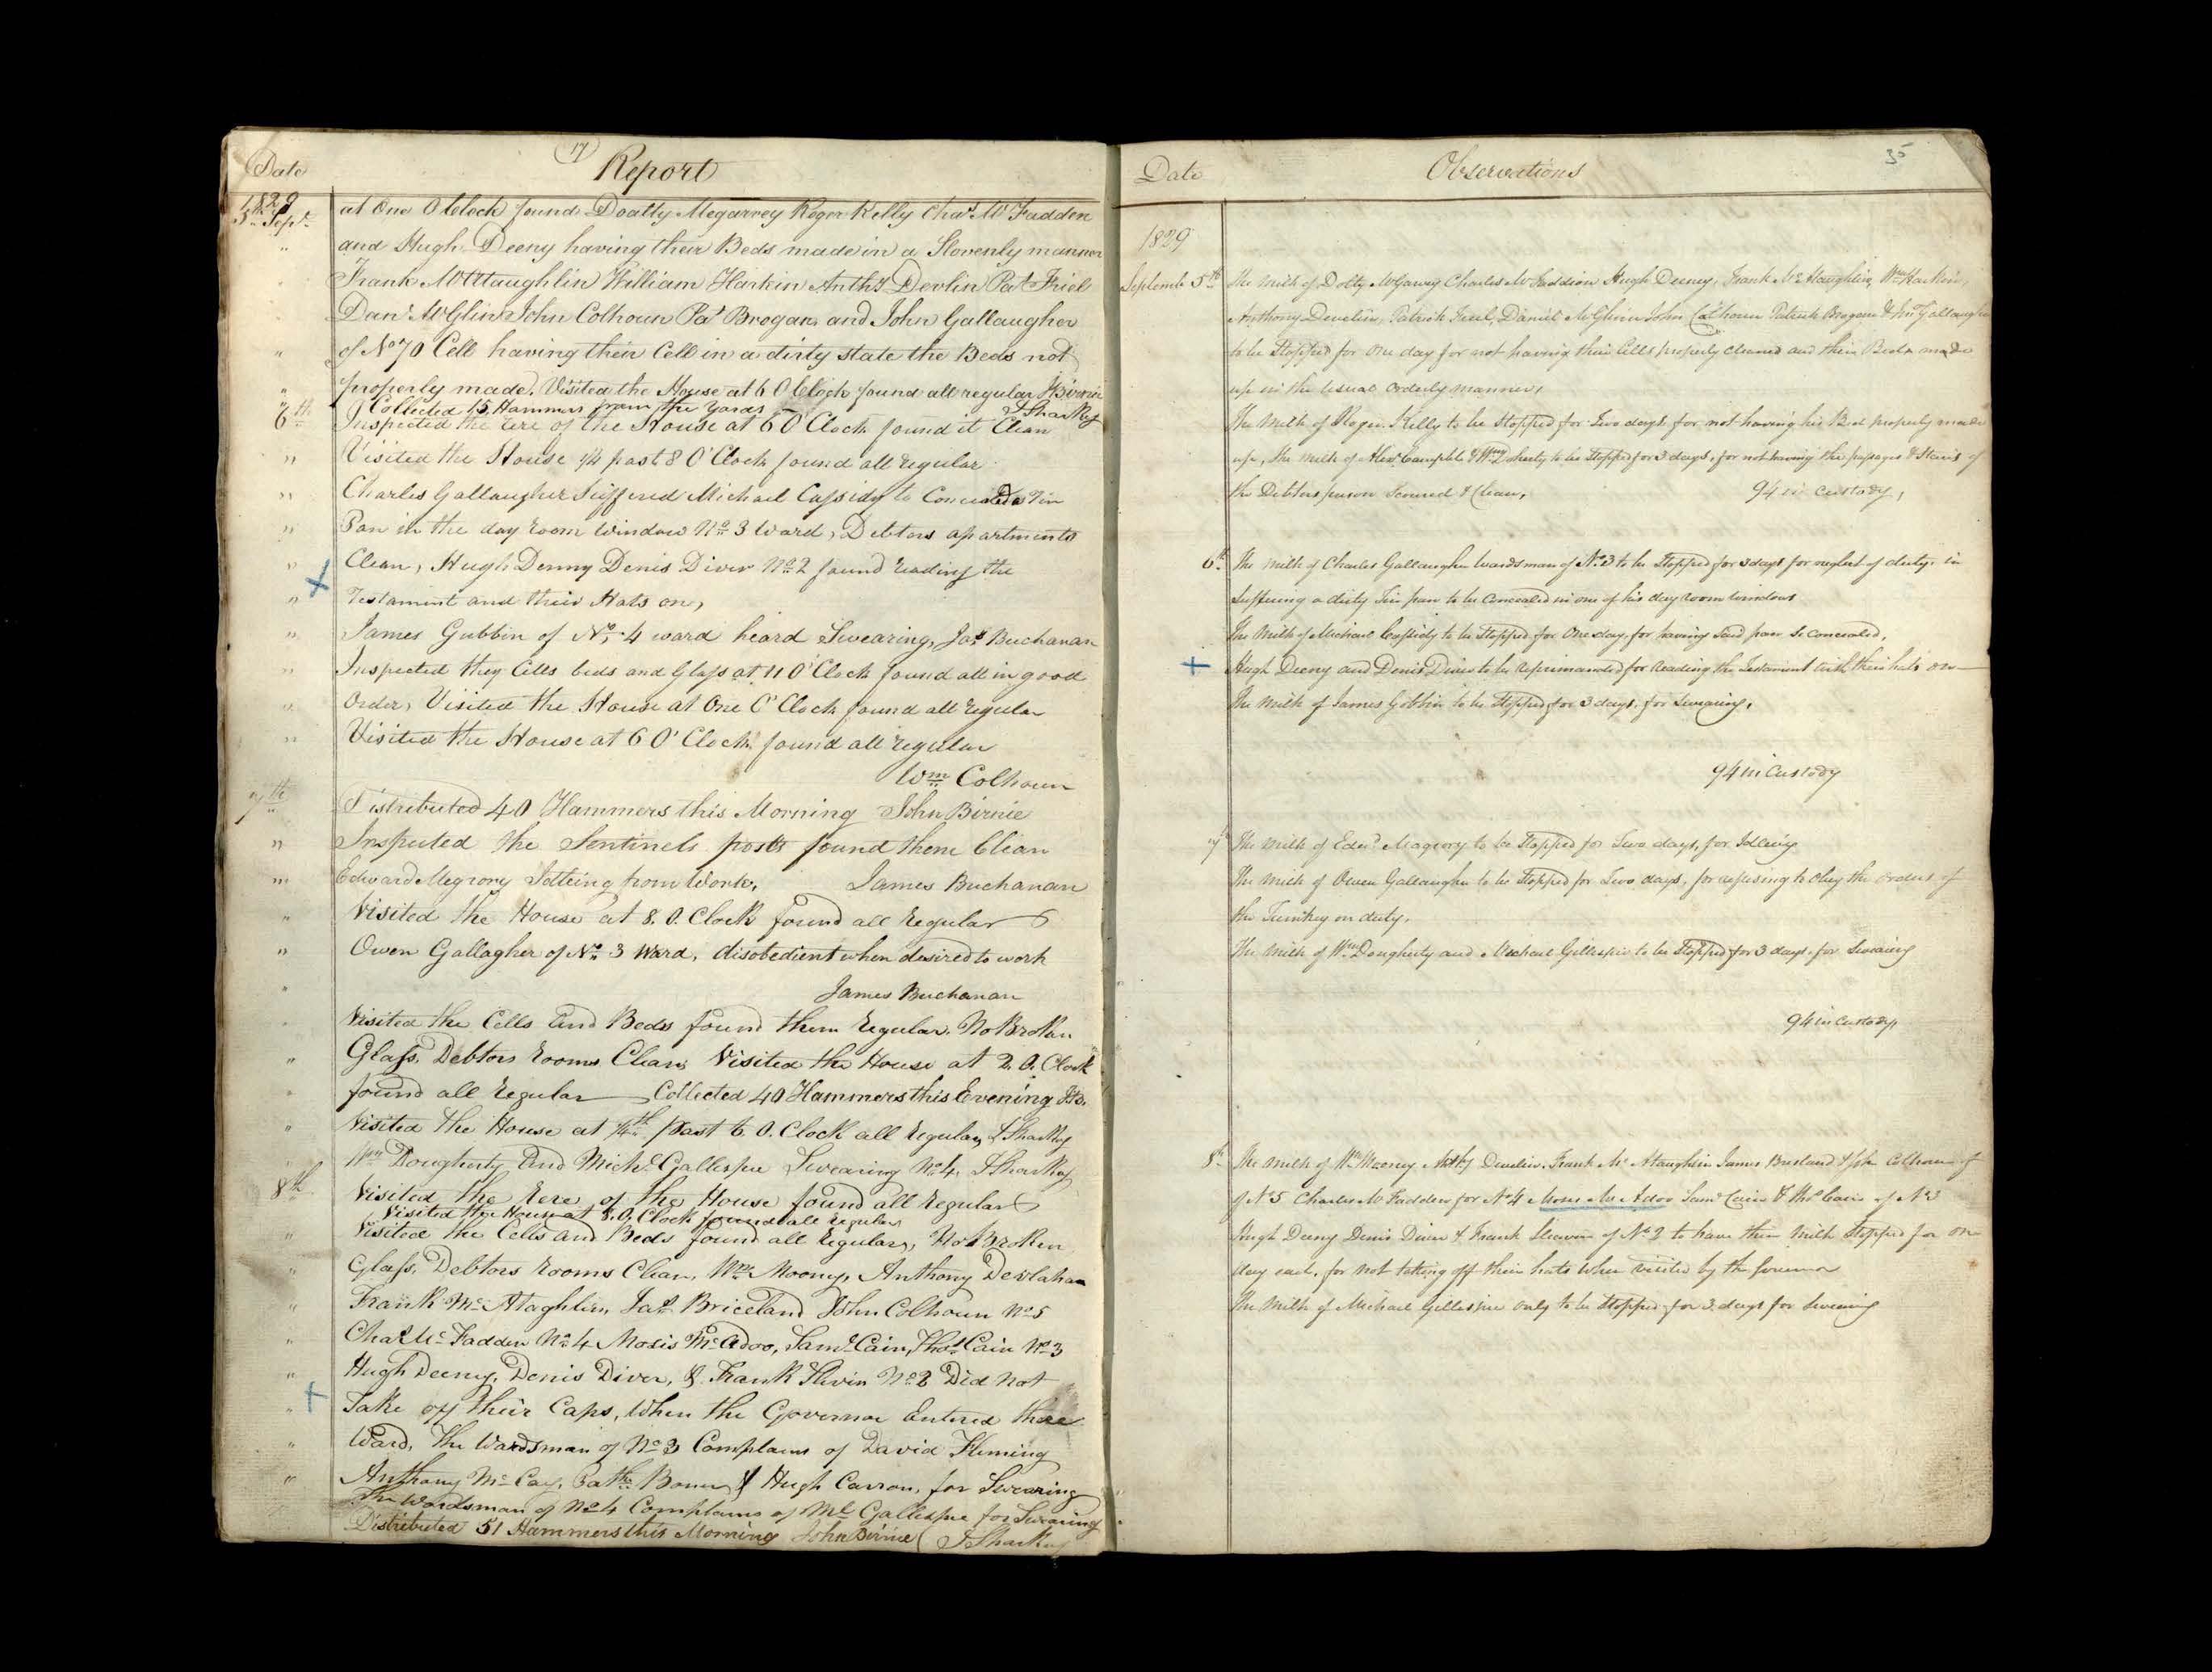 17
Date Report
1829
5th Sept. at One O Clock found Doalty Megarvey Roger Kelly Chas. Mc Fadden
" and Hugh Deeny having their Beds made in a Slovenly manner
Frank McAtaughlin William Harkin Anthy Devlin Pat Friel
Danl McGlin John Colhoun Pat Brogan and John Gallaugher
" of No 70 Cell having their Cell in a dirty state the Beds not
" properly made. Visited the House at 6 O Clock found all regular J Birnie
Collected 15 Hammers from the Yards J Sharkey
6th Inspected the rere of the House at 6 O'Clock found it Clean
" Visited the House 1/4 past 8 O'Clock found all regular
" Charles Gallaugher Suffered Michael Cassidy to Conceal a Tin
" Pan in the day room window No 3 Ward, Debtors apartments
" Clean, Hugh Denny Denis Diver No 2 found reading the
" Testament and their Hats on,
" James Gubbin of No 4 ward heard Swearing, Jas Buchanan
" Inspected they Cells beds and Glass at 11 O'Clock found all in good
" Order, Visited the House at One O'Clock found all regular
" Visited the House at 6 O'Clock found all regular
Wm Colhoun
7th Distributed 40 Hammers this Morning John Birnie
" Inspected the Sentinels posts found them Clean
" Edward Megrory Idleing from Work, James Buchanan
" Visited the House at 8. O. Clock found all regular
" Owen Gallagher of No 3 Ward, disobedient when desired to work
" James Buchanan
Visited the Cells and Beds found them regular. No Broken
" Glass. Debtors rooms Clean, Visited the House at 2. O. Clock
" found all regular Collected 40 Hammers this Evening J.B.
" Visited the House at 1/4th past 6. O. Clock all regular, J Sharkey
Wm Dougherty and Michl Gallespie Swearing No 4, J Sharkey
8th Visited the rere of the House found all regular
Visited the House at 8. O. Clock found all regular
" Visited the Cells and Beds found all regular, No Broken
" Glass, Debtors rooms Clean, Wm Moony, Anthony Devlahan
" Frank Mc Ataghlin, Jas Briceland John Colhoun No 5
" Chas Mc Fadden No 4 Mosis McAdoo, Saml Cain, Thos Cain No 3
" Hugh Deeny, Denis Diver, & Frank Slevin No 2 Did not
" Take off their Caps, When the Governor Entered there
" Ward, The Wardsman of No 3 Complains of David Fleming
" Anthony Mc Cay, Patk Boner & Hugh Carron, for Swearing
The Wardsman of No 4 Complains of Ml Gallespie for Swearing
Distributed 51 Hammers this Morning John Birnie J Sharkey
35
Date Observations
1829
September 5th The milk of Dolty McGarvey Charles McFaddion Hugh Deeney, Frank Mc Ataughlin, Wm Harkin,
Anthony Develin, Patrick Freel, Daniel McGlinn John Calhoun Patrick Brogan & Jno Gallaugher
to be Stopped for One day for not having their Cells properly cleaned and their Beds made
up in the usual Orderly manner,
The Milk of Roger Kelly to be Stopped for Two days for not having his Bed properly made
up, the milk of Alexr Campble & Wm Doherty to be Stopped for 3 days, for not having the passages & Stairs of
the Debtors prison Scoured & Clean, 94 in Custody,
6th The milk of Charles Gallaugher Wardsman of No 3 to be Stopped for 3 days for neglect of duty in
Suffering a dirty Tin pan to be Concealed in one of his day room windows
The Milk of Michael Cassidy to be Stopped for One day, for having Said pan So Concealed,
Hugh Deeny and Denis Diver to be reprimanded for reading the Testament with their hats on
The Milk of James Gobbin to be Stopped for 3 days, for Swearing,
94 in Custody
7th The milk of Edwd Magrory to be Stopped for Two days, for Idleing
The Milk of Owen Gallaugher to be Stopped for Two days, for refusing to obey the orders of
the Turnkey on duty,
The Milk of Wm Dougherty and Michael Gillespie to be Stopped for 3 days for Swearing
94 in Custody,
8th The Milk of Wm Mooney Anthy Develin, Frank Mc Ataughlin James Brisland & John Colhoun of
of No 5 Charles McFadden for No 4 Moses Mc Adoo Saml Cain & Thos Cain of No 3
Hugh Deeny Denis Diver & Frank Sleavin of No 2 to have their Milk Stopped for one
day each, for not taking off their hats when visited by the Governor
The Milk of Michael Gillespie only to be Stopped for 3 days for Swearing